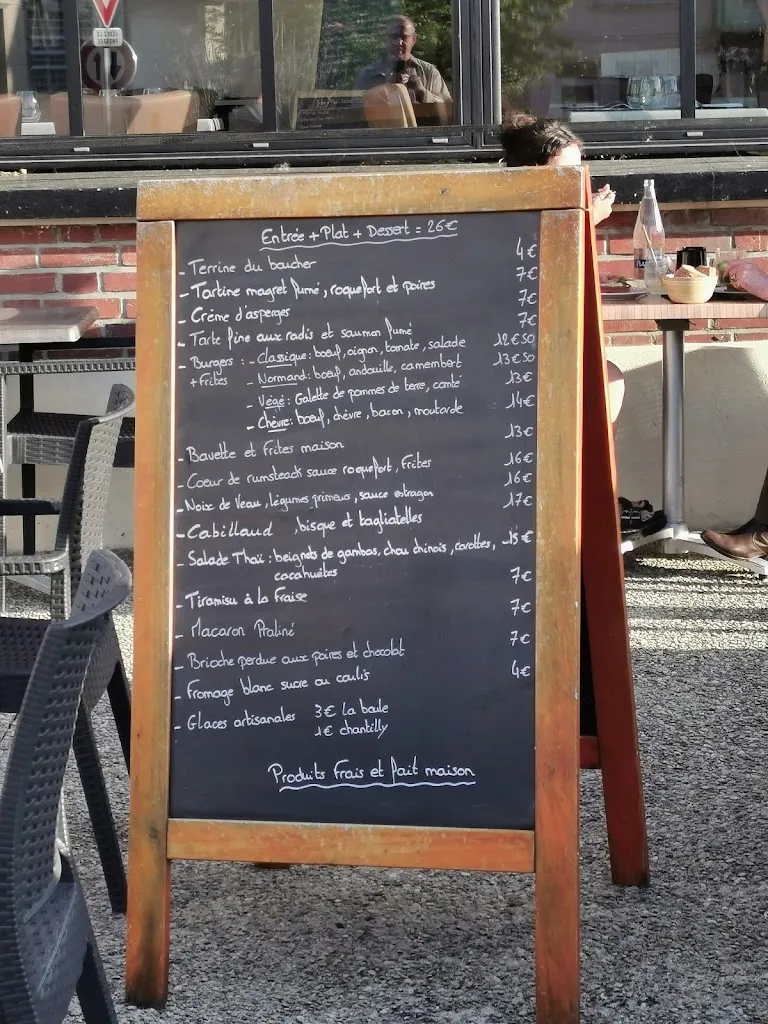 Entrée + Plat + Dessert = 26€
- Terrine du boucher 4€
- Tartine magret fumé, roquefort et poires 7€
- Crème d'asperges 7€
- Tarte fine aux radis et saumon fumé 7€
- Burgers : - Classique : boeuf, oignon, tomate, salade 12€50
+ frites - Normand : boeuf, andouille, camembert 13€50
- Végé : Galette de pommes de terre, comté 13€
- Chèvre : boeuf, chèvre, bacon, moutarde 14€
- Bavette et frites maison 13€
- Coeur de rumsteack sauce roquefort, frites 16€
- Noix de Veau, légumes primeurs, sauce estragon 16€
- Cabillaud , bisque et tagliatelles 17€
- Salade Thaï : beignets de gambas, chou chinois, carottes, 15€
cacahuètes
- Tiramisu à la Fraise 7€
- Macaron Praliné 7€
- Brioche perdue aux poires et chocolat 7€
- Fromage blanc sucre ou coulis 4€
- Glaces artisanales 3€ la boule
1€ chantilly
Produits Frais et fait maison